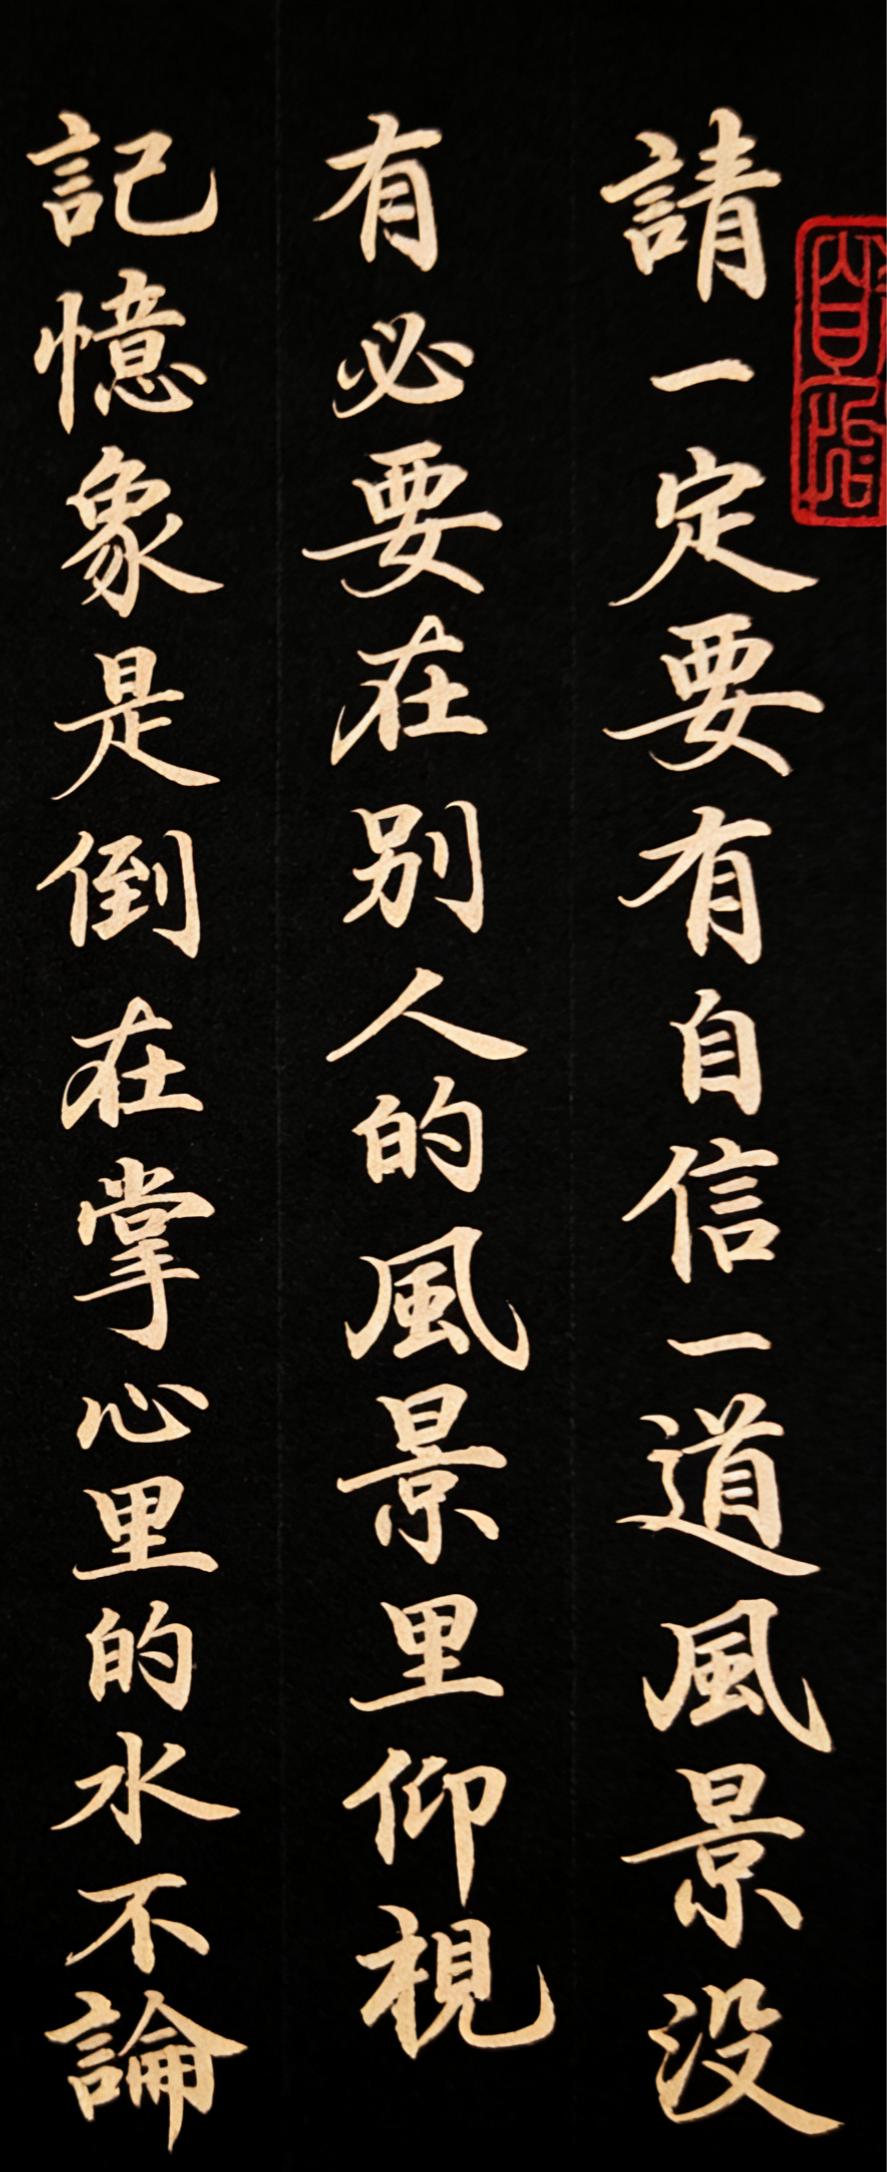 請一定要有自信一道風景没
有必要在别人的風景里仰視
記憶象是倒在掌心里的水不論